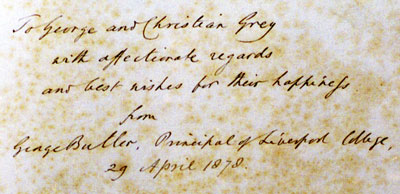 To George and Christian Grey
with affectionate regards
and best wishes for their happiness
from
George Butler, Principal of Liverpool College,
29 April 1878.